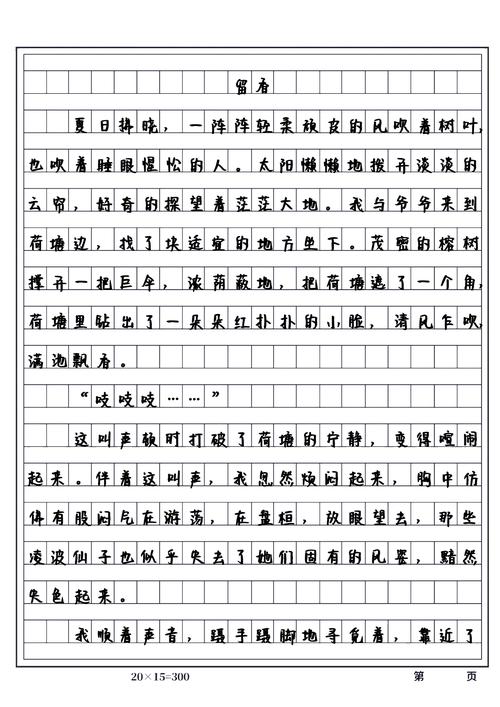 留香
夏日拂晓，一阵阵轻柔顽皮的风吹着树叶，
也吹着睡眼惺忪的人。太阳懒懒地拨开淡淡的
云帘，好奇的探望着茫茫大地。我与爷爷来到
荷塘边，找了块适宜的地方坐下。茂密的榕树
撑开一把巨伞，浓荫蔽地，把荷塘遮了一个角，
荷塘里钻出了一朵朵红扑扑的小脸，清风乍吹，
满池飘香。
“吱吱吱……”
这叫声顿时打破了荷塘的宁静，变得喧闹
起来。伴着这叫声，我忽然烦闷起来，胸中仿
佛有股闷气在游荡，在盘桓，放眼望去，那些
凌波仙子也似乎失去了她们固有的风姿，黯然
失色起来。
我顺着声音，蹑手蹑脚地寻觅着，靠近了
20×15=300 第 页